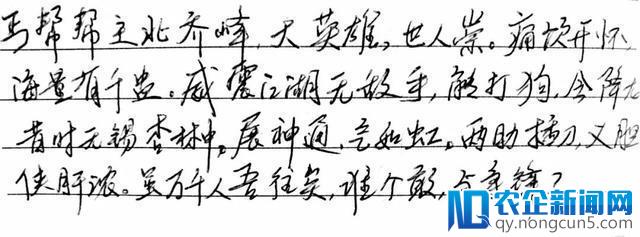 丐帮帮主北乔峰,大英雄,世人崇。痛饮开怀,
海量有千盅。威震江湖无敌手,能打狗,会降龙
昔时无锡杏林中,展神通,气如虹。两助插刀,义胆
侠肝浓。虽万千人吾往矣,谁个敢,与争锋?
农企新闻网
qy.nongcun5.com